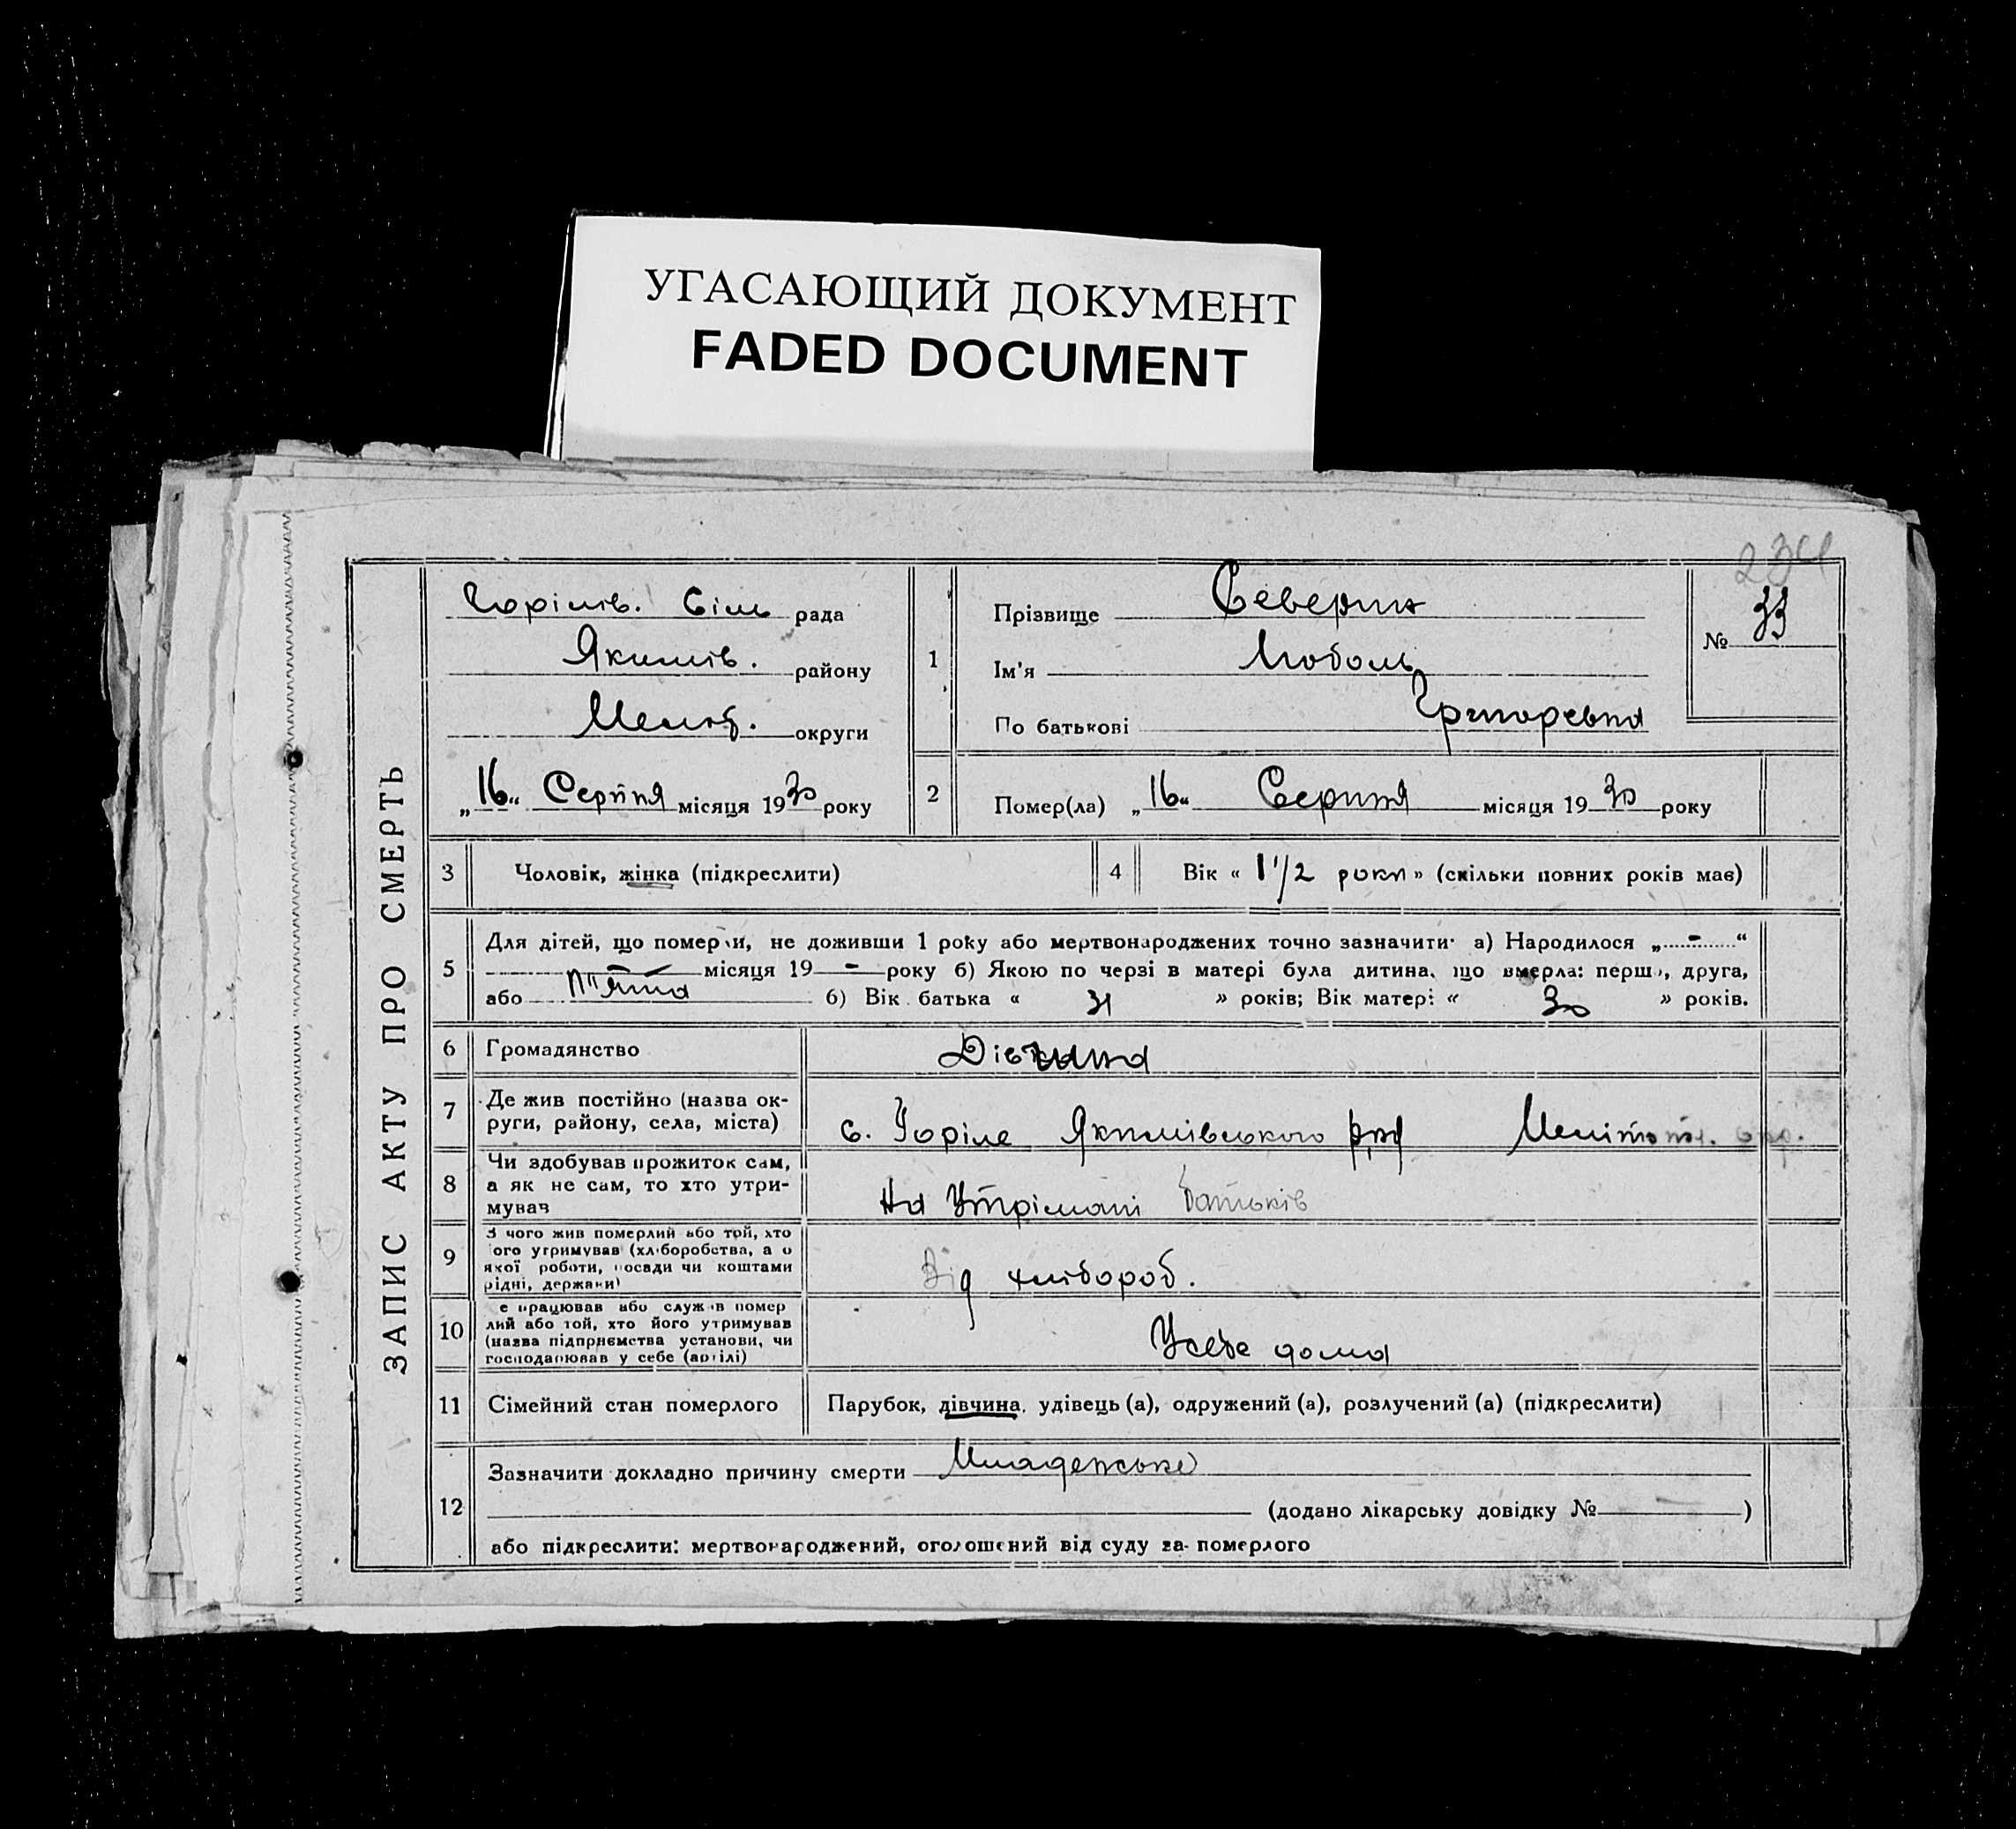 УГАСАЮЩИЙ ДОКУМЕНТ
FADED DOCUMENT
234
ЗАПИС АКТУ ПРО СМЕРТЬ
Горілів. Сіль рада
Якимів. району
округи
„16“ Серпня місяця 1930 року
1
Прізвище Северин
Ім'я Люболь
По батькові Григоревна
№ 33
2 Помер(ла) „16“ Серпня місяця 1930 року
3 Чоловік, жінка (підкреслити)
4 Вік « 1 1/2 роки » (скільки повних років має)
5
Для дітей, що померли, не доживши 1 року або мертвонароджених точно зазначити: а) Народилося „ - “
— місяця 19 - року б) Якою по черзі в матері була дитина, що вмерла: перша, друга,
або п"ята б) Вік батька « 31 » років; Вік матері « 30 » років.
6 Громадянство Дівчина
7 Де жив постійно (назва ок-
руги, району, села, міста)
с. Горіле Якимівського р-на Меліто
8 Чи здобував прожиток сам,
а як не сам, то хто утри-
мував
На Утрімані батьків
9 З чого жив померлий або той, хто
ого утримував (хліборобства, а о
якої роботи, посади чи коштами
рідні, держави)
Від хлібороб.
10 е працював або служив помер
лий або той, хто його утримував
(назва підприємства установи, чи
господарював у себе (артілі)
Усебе дома
11 Сімейний стан померлого Парубок, дівчина, удівець (а), одружений (а), розлучений (а) (підкреслити)
12
Зазначити докладно причину смерти Младенське
(додано лікарську довідку № )
або підкреслити: мертвонароджений, оголошений від суду за померлого